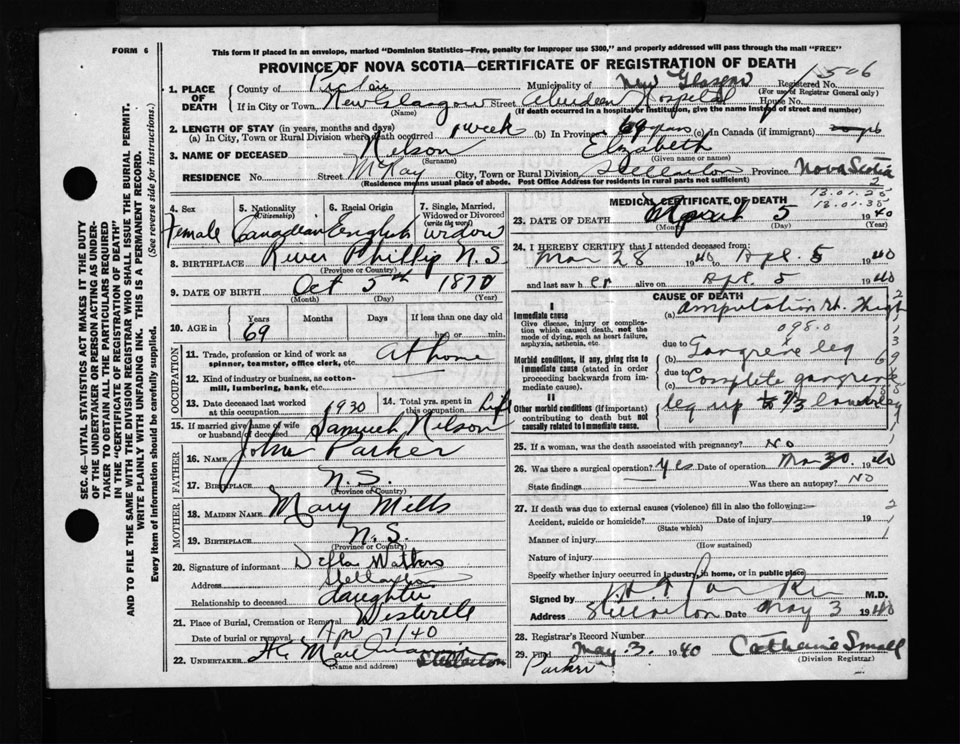 FORM 6
This form if placed in an envelope, marked "Dominion Statistics—Free, penalty for improper use $300," and properly addressed will pass through the mail "FREE"
PROVINCE OF NOVA SCOTIA—CERTIFICATE OF REGISTRATION OF DEATH
SEC. 46—VITAL STATISTICS ACT MAKES IT THE DUTY
OF THE UNDERTAKER OR PERSON ACTING AS UNDER-
TAKER TO OBTAIN ALL THE PARTICULARS REQUIRED
IN THE "CERTIFICATE OF REGISTRATION OF DEATH"
AND TO FILE THE SAME WITH THE DIVISION REGISTRAR WHO SHALL ISSUE THE BURIAL PERMIT.
WRITE PLAINLY WITH UNFADING INK. THIS IS A PERMANENT RECORD.
Every Item of Information should be carefully supplied. (See reverse side for instructions.)
1. PLACE OF DEATH County of Pictou Municipality of New Glasgow Registered No. 1506
(For use of Registrar General only)
If in City or Town New Glasgow Street Aberdeen Hospital House No.
(Name) (If death occurred in a hospital or institution, give the name instead of street and number)
2. LENGTH OF STAY (in years, months and days)
(a) In City, Town or Rural Division where death occurred 1 week (b) In Province 69 yrs (c) In Canada (if immigrant)
3. NAME OF DECEASED Nelson Elizabeth
(Surname) (Given name or names)
RESIDENCE No. Street McKay City, Town or Rural Division Stellarton Province Nova Scotia
(Residence means usual place of abode. Post Office Address for residents in rural parts not sufficient)
4. Sex 5. Nationality (Citizenship) 6. Racial Origin 7. Single, Married, Widowed or Divorced (write the word)
Female Canadian English widow
8. BIRTHPLACE River Phillip N.S.
(Province or Country)
9. DATE OF BIRTH Oct 5th 1870
(Month) (Day) (Year)
10. AGE in Years Months Days If less than one day old
69 hrs. or min.
OCCUPATION
11. Trade, profession or kind of work as spinner, teamster, office clerk, etc. at home
12. Kind of industry or business, as cotton-mill, lumbering, bank, etc.
13. Date deceased last worked at this occupation 1930 14. Total yrs. spent in this occupation Life
15. If married give name of wife or husband of deceased Samuel Nelson
FATHER
16. Name John Parker
17. Birthplace N.S.
(Province or Country)
MOTHER
18. Maiden Name Mary Mills
19. Birthplace N.S.
(Province or Country)
20. Signature of informant Della Watters
Address Stellarton
Relationship to deceased daughter
21. Place of Burial, Cremation or Removal Westville
Date of burial or removal Apr 7/40
22. Undertaker Stellarton
(Name and address)
MEDICAL CERTIFICATE OF DEATH
2
13.01.25
12.01.35
23. DATE OF DEATH April 5 1940
(Month) (Day) (Year)
24. I HEREBY CERTIFY that I attended deceased from:
Mar 28 1940 to Apl. 5 1940
and last saw her alive on Apl. 5 1940
CAUSE OF DEATH
I
Immediate cause
Give disease, injury or complication which caused death, not the mode of dying, such as heart failure, asphyxia, asthenia, etc.
(a) amputation rt. thigh
098.0
due to
Morbid conditions, if any, giving rise to immediate cause (stated in order proceeding backwards from immediate cause).
(b) Gangrene leg
due to
(c) Complete gangrene
II
Other morbid conditions (if important) contributing to death but not causally related to immediate cause.
leg up to 2/3 lower leg
25. If a woman, was the death associated with pregnancy? No
26. Was there a surgical operation? Yes Date of operation Mar 30 1940
State findings Was there an autopsy? No
27. If death was due to external causes (violence) fill in also the following:—
Accident, suicide or homicide? Date of injury 19
(State which)
Manner of injury
(How sustained)
Nature of injury
Specify whether injury occurred in industry, in home, or in public place
Signed by M.D.
Address Stellarton Date May 3 1940
28. Registrar's Record Number
29. Filed May 3. 1940 Catharine Small
(Division Registrar)
Parker